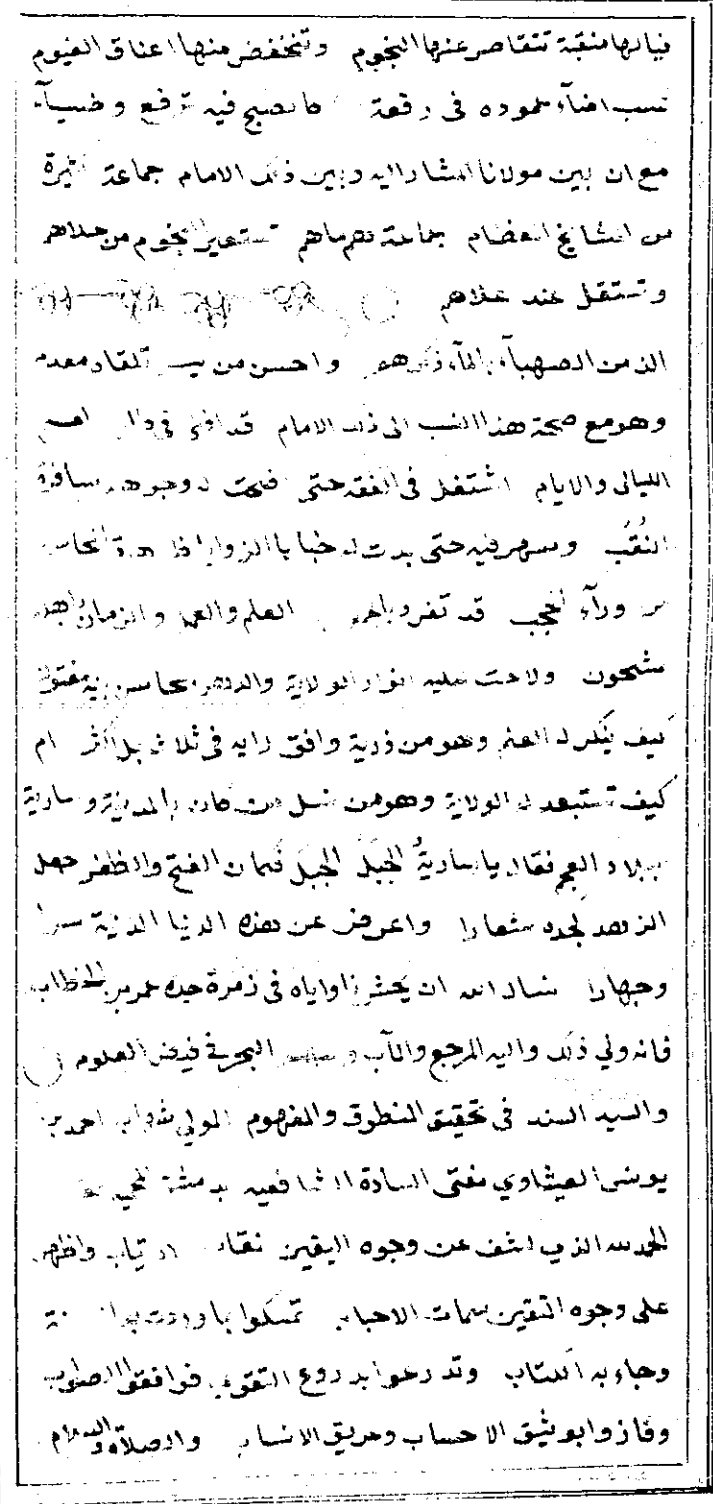 فيالها منقبة تتقاصر عنها النجوم وتنخفض منها اعناق الغيوم
نسب اضآء عموده فى رفعة كالصبح فيه ترفع وضيآء
مع ان بين مولانا المشار اليه وبين ذلك الامام جماعة كثيرة
من المشايخ العظام جماعة هم ماهم تستعير النجوم من حلاهم
وتستقل عند علاهم
الذ من الصهبآء بالمآء ذكرهم واحسن من
وهو مع صحة هذا النسب الى ذلك الامام قد
الليالى والايام اشتغل فى الفقه حتى له وجوهه سافرة
النُقُب وسهر فيه حتى بدت له خبايا الزوايا المحاسن
من ورآء الحجب قد تفرد العلم والعمل والزمان
مشحون ولاحت عليه انوار الولاية والدهر بمحاسن مفتون
كيف ينكر له العلم وهو من ذرية وافق رايه فى ثلاث بل اكثر ام
كيف تستبعد له الولاية وهو من نسل من كان بالمدينة وسارية
ببلاد العجم فقال يا ساريةُ الجبَلَ الجبَلَ فكان الفتح والظفر جعل
الزهد لجده شعارا واعرض عن هذه الدنيا الدنية سرا
وجهارا نسال الله ان يحشرنا واياه فى زمرة جده عمر بن الخطاب
فانه ولي ذلك واليه المرجع والمآب البحر فى فيض العلوم
والسيد السند فى تحقيق المنطوق والمفهوم المولى شهاب احمد بن
يونس العيثاوي مفتى السادة الشافعيه بدمشق المحمي
الحمد لله الذي كشف عن وجوه اليقين نقاب الارتياب واظهر
على وجوه المتقين سمات الاحباب تمسكوا بما وردت به السنة
وجاء به الكتاب وتدرعوا بدروع التقوى فوافقوا الصواب
وفازوا بوثيق الاحساب وعريق الانساب والصلاة والسلام